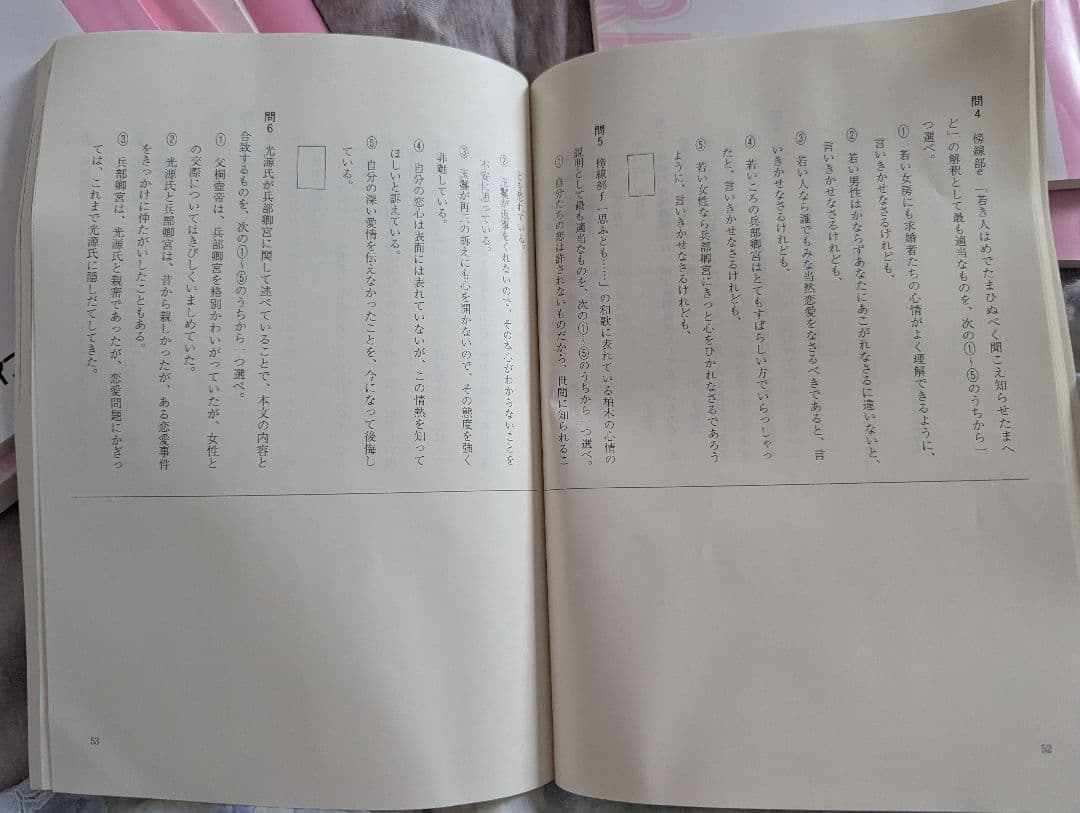 問4 傍線部e「若き人はめでたまひぬべく聞こえ知らせたまへ
ど」の解釈として最も適当なものを、次の①〜⑤のうちから一
つ選べ。
① 若い女房にも求婚者たちの心情がよく理解できるように、
言いきかせなさるけれども、
② 若い男性はかならずあなたにあこがれなさるに違いないと、
言いきかせなさるけれども、
③ 若い人なら誰でもみな当然恋愛をなさるべきであると、言
いきかせなさるけれども、
④ 若いころの兵部卿宮はとてもすばらしい方でいらっしゃっ
たと、言いきかせなさるけれども、
⑤ 若い女性なら兵部卿宮にきっと心をひかれなさるであろう
ように、言いきかせなさるけれども、
問5 傍線部f「思ふとも……」の和歌に表れている柏木の心情の
説明として最も適当なものを、次の①〜⑤のうちから一つ選べ。
① 自分たちの恋は許されないものだから、世間に知られるこ
とを恐れている。
② 玉鬘が返事をくれないので、その本心がわからないことを
不安に思っている。
③ 玉鬘が再三の訴えにも心を開かないので、その態度を強く
非難している。
④ 自分の恋心は表面には表れていないが、この情熱を知って
ほしいと訴えている。
⑤ 自分の深い愛情を伝えなかったことを、今になって後悔し
ている。
問6 光源氏が兵部卿宮に関して述べていることで、本文の内容と
合致するものを、次の①〜⑤のうちから一つ選べ。
① 父桐壺帝は、兵部卿宮を格別かわいがっていたが、女性と
の交際についてはきびしくいましめていた。
② 光源氏と兵部卿宮は、昔から親しかったが、ある恋愛事件
をきっかけに仲たがいしたこともある。
③ 兵部卿宮は、光源氏と親密であったが、恋愛問題にかぎっ
ては、これまで光源氏に隠しだてしてきた。
52
53